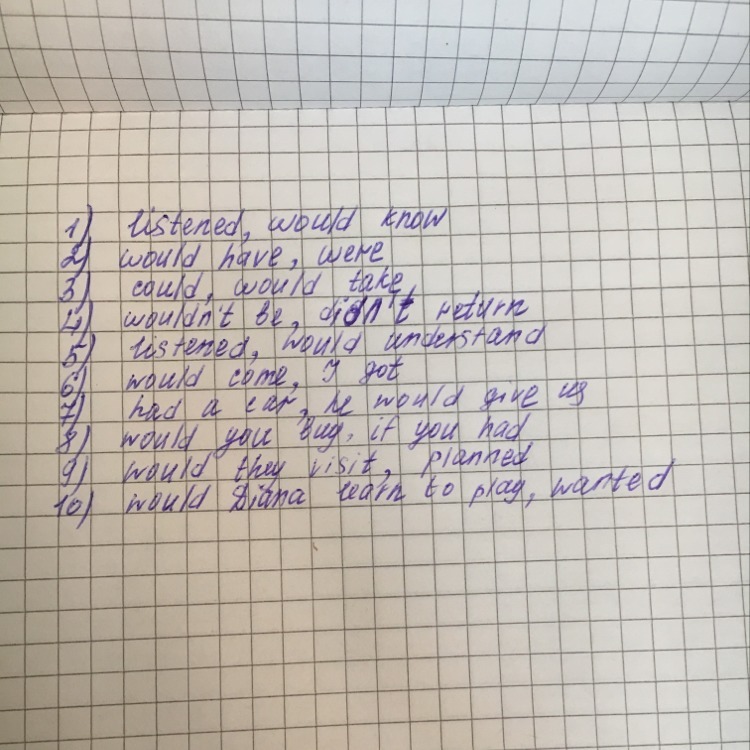 1) listened, would know
2) would have, were
3) could, would take
4) wouldn't be, didn't return
5) listened, would understand
6) would come, I got
7) had a car, he would give us
8) would you buy, if you had
9) would they visit, planned
10) would Diana learn to play, wanted